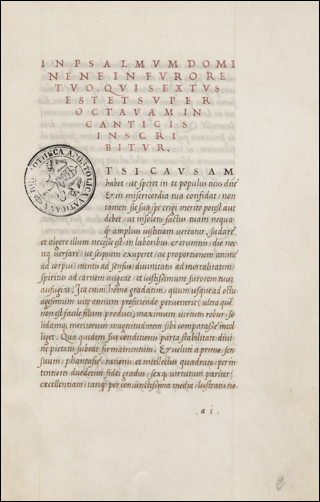 IN PSALMVM DOMI
NE NE IN FVRORE
TVO. QVI SEXTVS
EST ET SVPER
OCTAVAM IN
CANTICIS
INSCRI
BITVR.
TSI CAVSAM
habet, ut speret in te populus tuus dñe
& in misericordia tua confidat, non
tamen sic sua spe erigi merito potest aut
debet, ut insolens factus tuam nequa-
amplius iustitiam vereatur, sudare
et algere illum necesse est in laboribus et erumnis, die noc-
teq versari, ut seipsum exuperet, ac proportionem animę
ad corpus, mentis ad sensus, divinitatis ad mortalitatem,
spiritus ad carnem adaequet et iustissimum furorem tuum
aufugiat. Ita enim homo gradatim, quum usque ad octu-
agesimum utq annum proficiendo pervenerit, ultra quę
non est facile illum produci, maximum virium robur, so-
lidamq meritorum magnitudinem sibi comparasse intel-
liget. Qua quidem sue conditionis parta stabilitate divi-
ne pietatis subeat firmamentum. & veluti a permo, sen-
suum, phantasię, rationis, et intellectus quadrato, perin-
tentionis duodecim fidei gradus, sexq virtutum pariter
excellentiam, tanq per convenientissima media, lustratis no-
a i